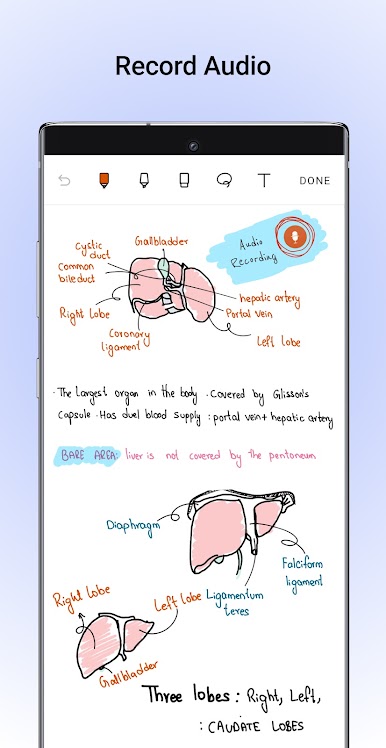 Record Audio
T DONE
Cystic
duct
Gallbladder
Audio
Recording
Common
bile duct
hepatic artery
Portal vein
Right lobe
Coronary
ligament
Left lobe
· The largest organ in the body · Covered by Glisson's
Capsule · Has duel blood supply : portal vein + hepatic artery
BARE AREA: liver is not covered by the peritoneum
Diaphragm
Falciform
ligament
Ligamentum
teres
Right lobe
Left lobe
Gallbladder
Three lobes : Right, Left,
: CAUDATE LOBES